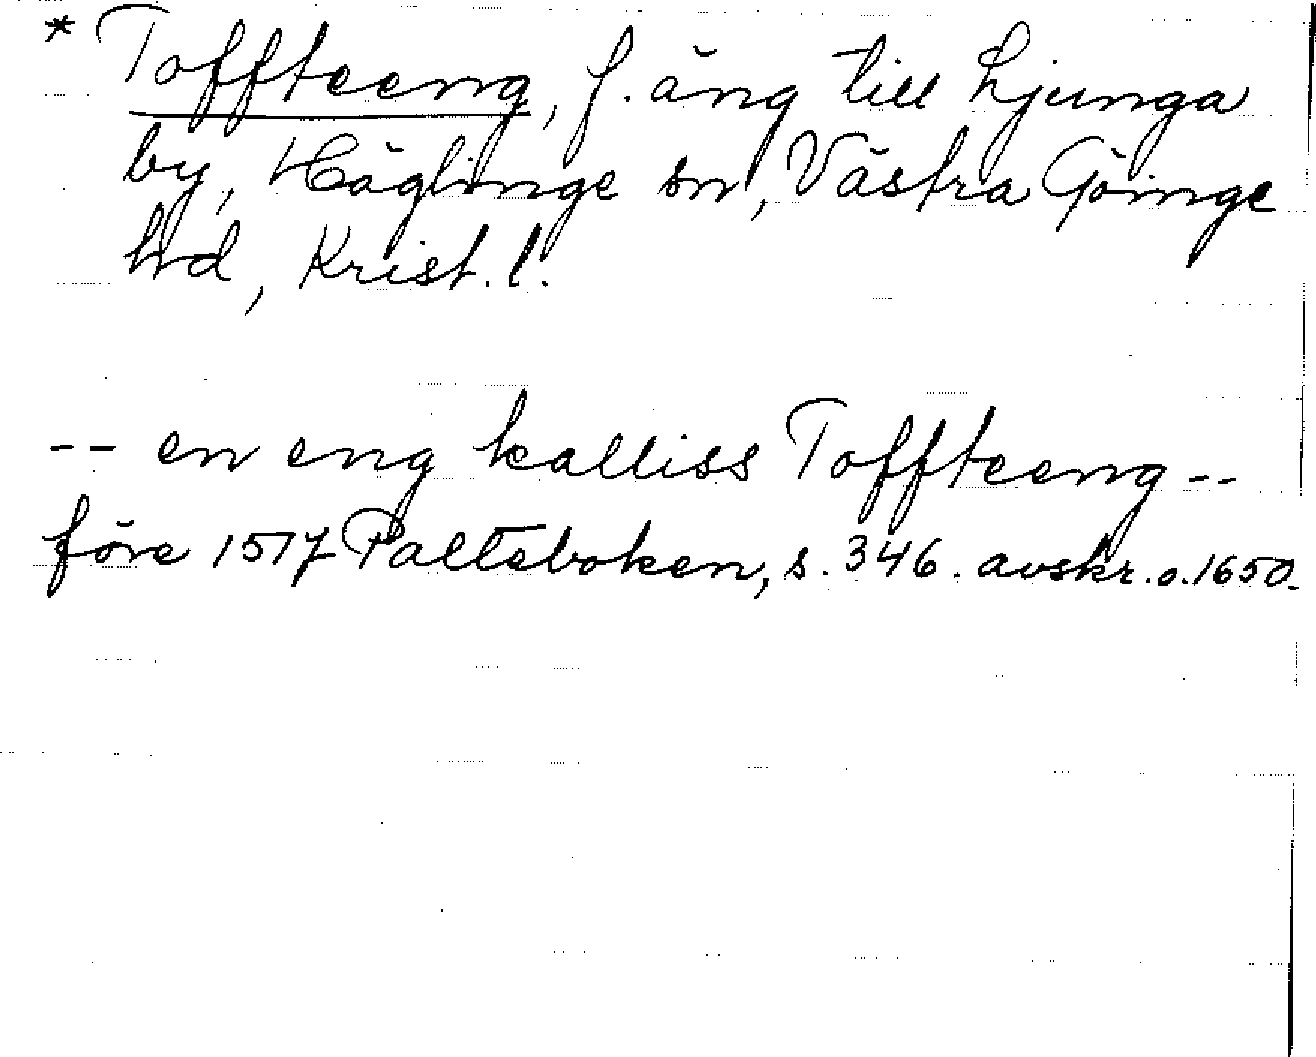 * Toffteeng, f. äng till Ljunga
by, Häglinge sn, Västra Göinge
hd, Krist. l.
-- en eng kalliss Toffteeng --
före 1517 Palteboken, s. 346. avskr. o. 1650.